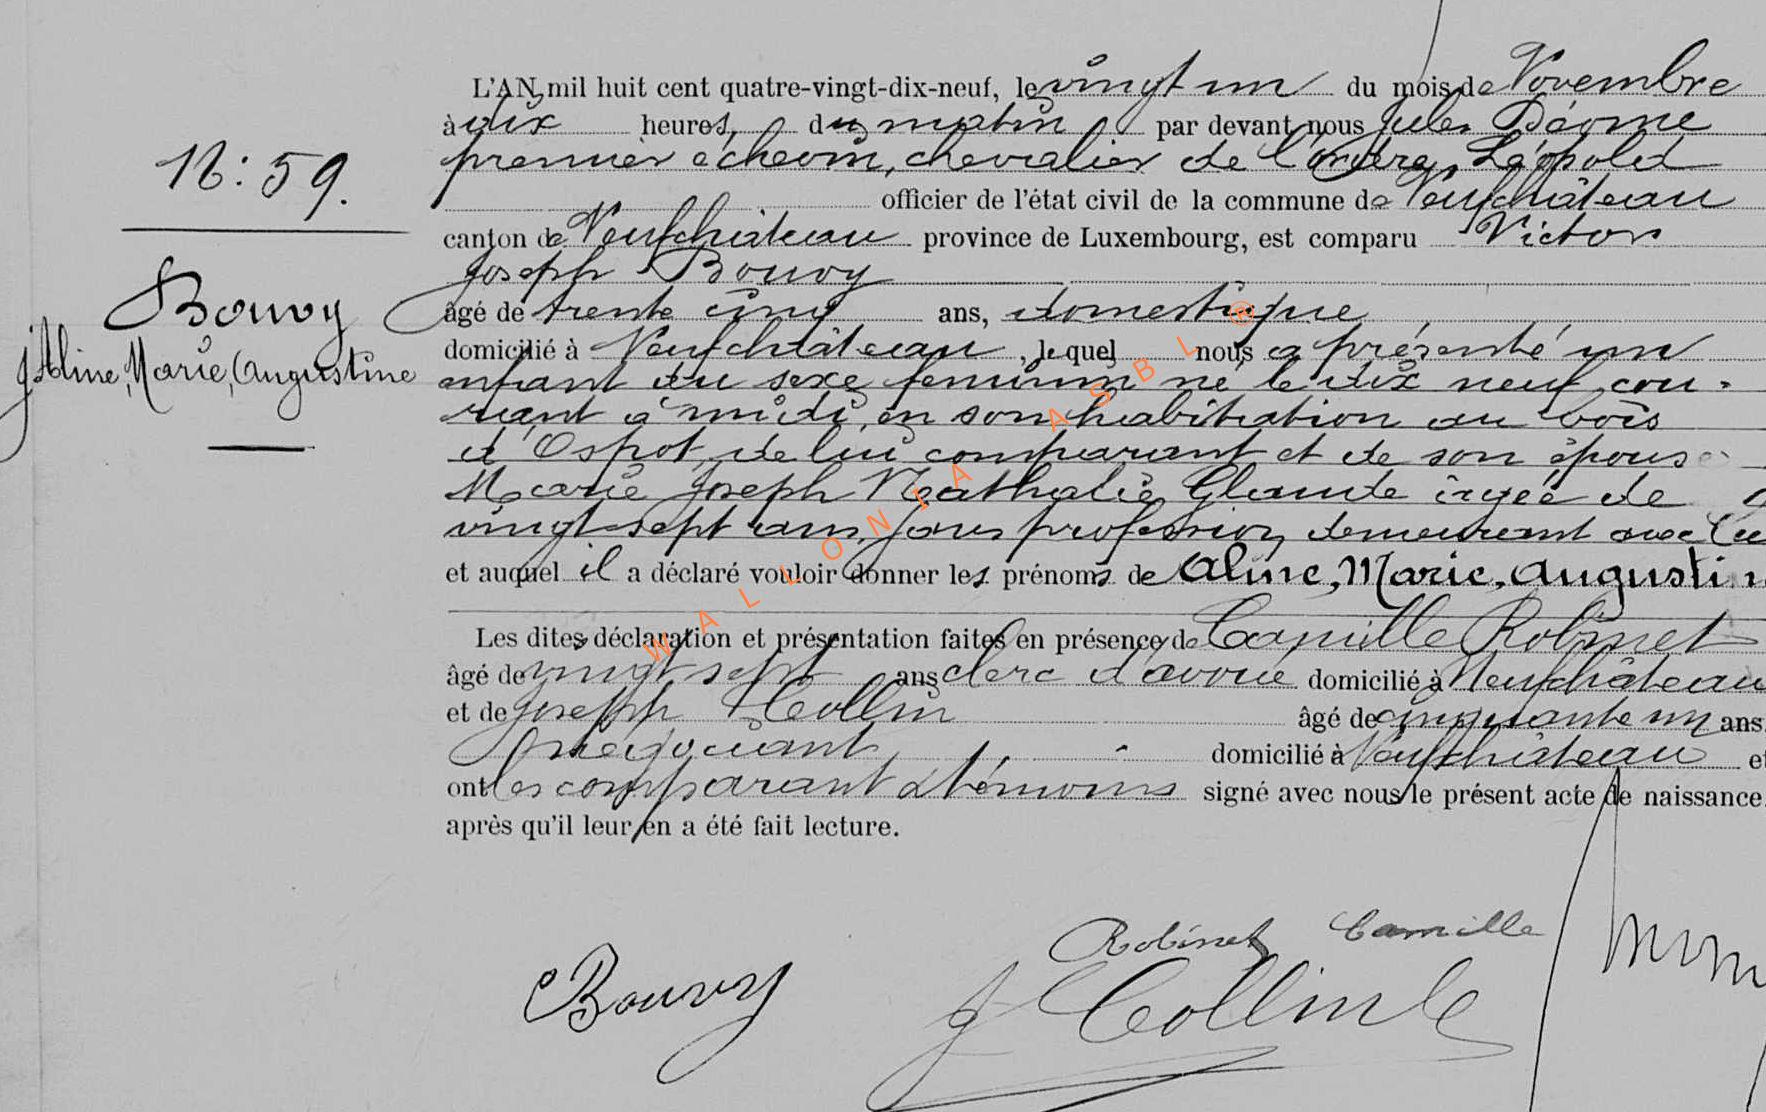 N: 59.
Bouvy
Aline, Marie, Augustine
L'AN mil huit cent quatre-vingt-dix-neuf, le vingt un du mois de Novembre
à dix heures, du matin par devant nous Jules
premier échevin, chevalier de l'ordre Léopold
officier de l'état civil de la commune de Neufchâteau
canton de Neufchâteau province de Luxembourg, est comparu Victor
Joseph Bouvy
âgé de trente cinq ans, domestique
domicilié à Neufchâteau, lequel nous a présenté un
enfant du sexe feminin né le dix neuf cou-
rant à midi, en son habitation au bois
d'Ospot, de lui comparant et de son épouse
Marie Joseph Nathalie Glaude âgée de
vingt-sept ans, sans profession, demeurant avec lui
et auquel il a déclaré vouloir donner les prénoms de Aline, Marie, Augustin
Les dites déclaration et présentation faites en présence de Camille Robinet
âgé de vingt sept ans clerc d'avoué domicilié à Neufchâteau
et de Joseph Collin âgé de cinquante un ans
négociant domicilié à Neufchâteau et
ont les comparant & témoins signé avec nous le présent acte de naissance,
après qu'il leur en a été fait lecture.
Robinet Camille
Bouvy
J Collin
WALLONIA ASBL ®